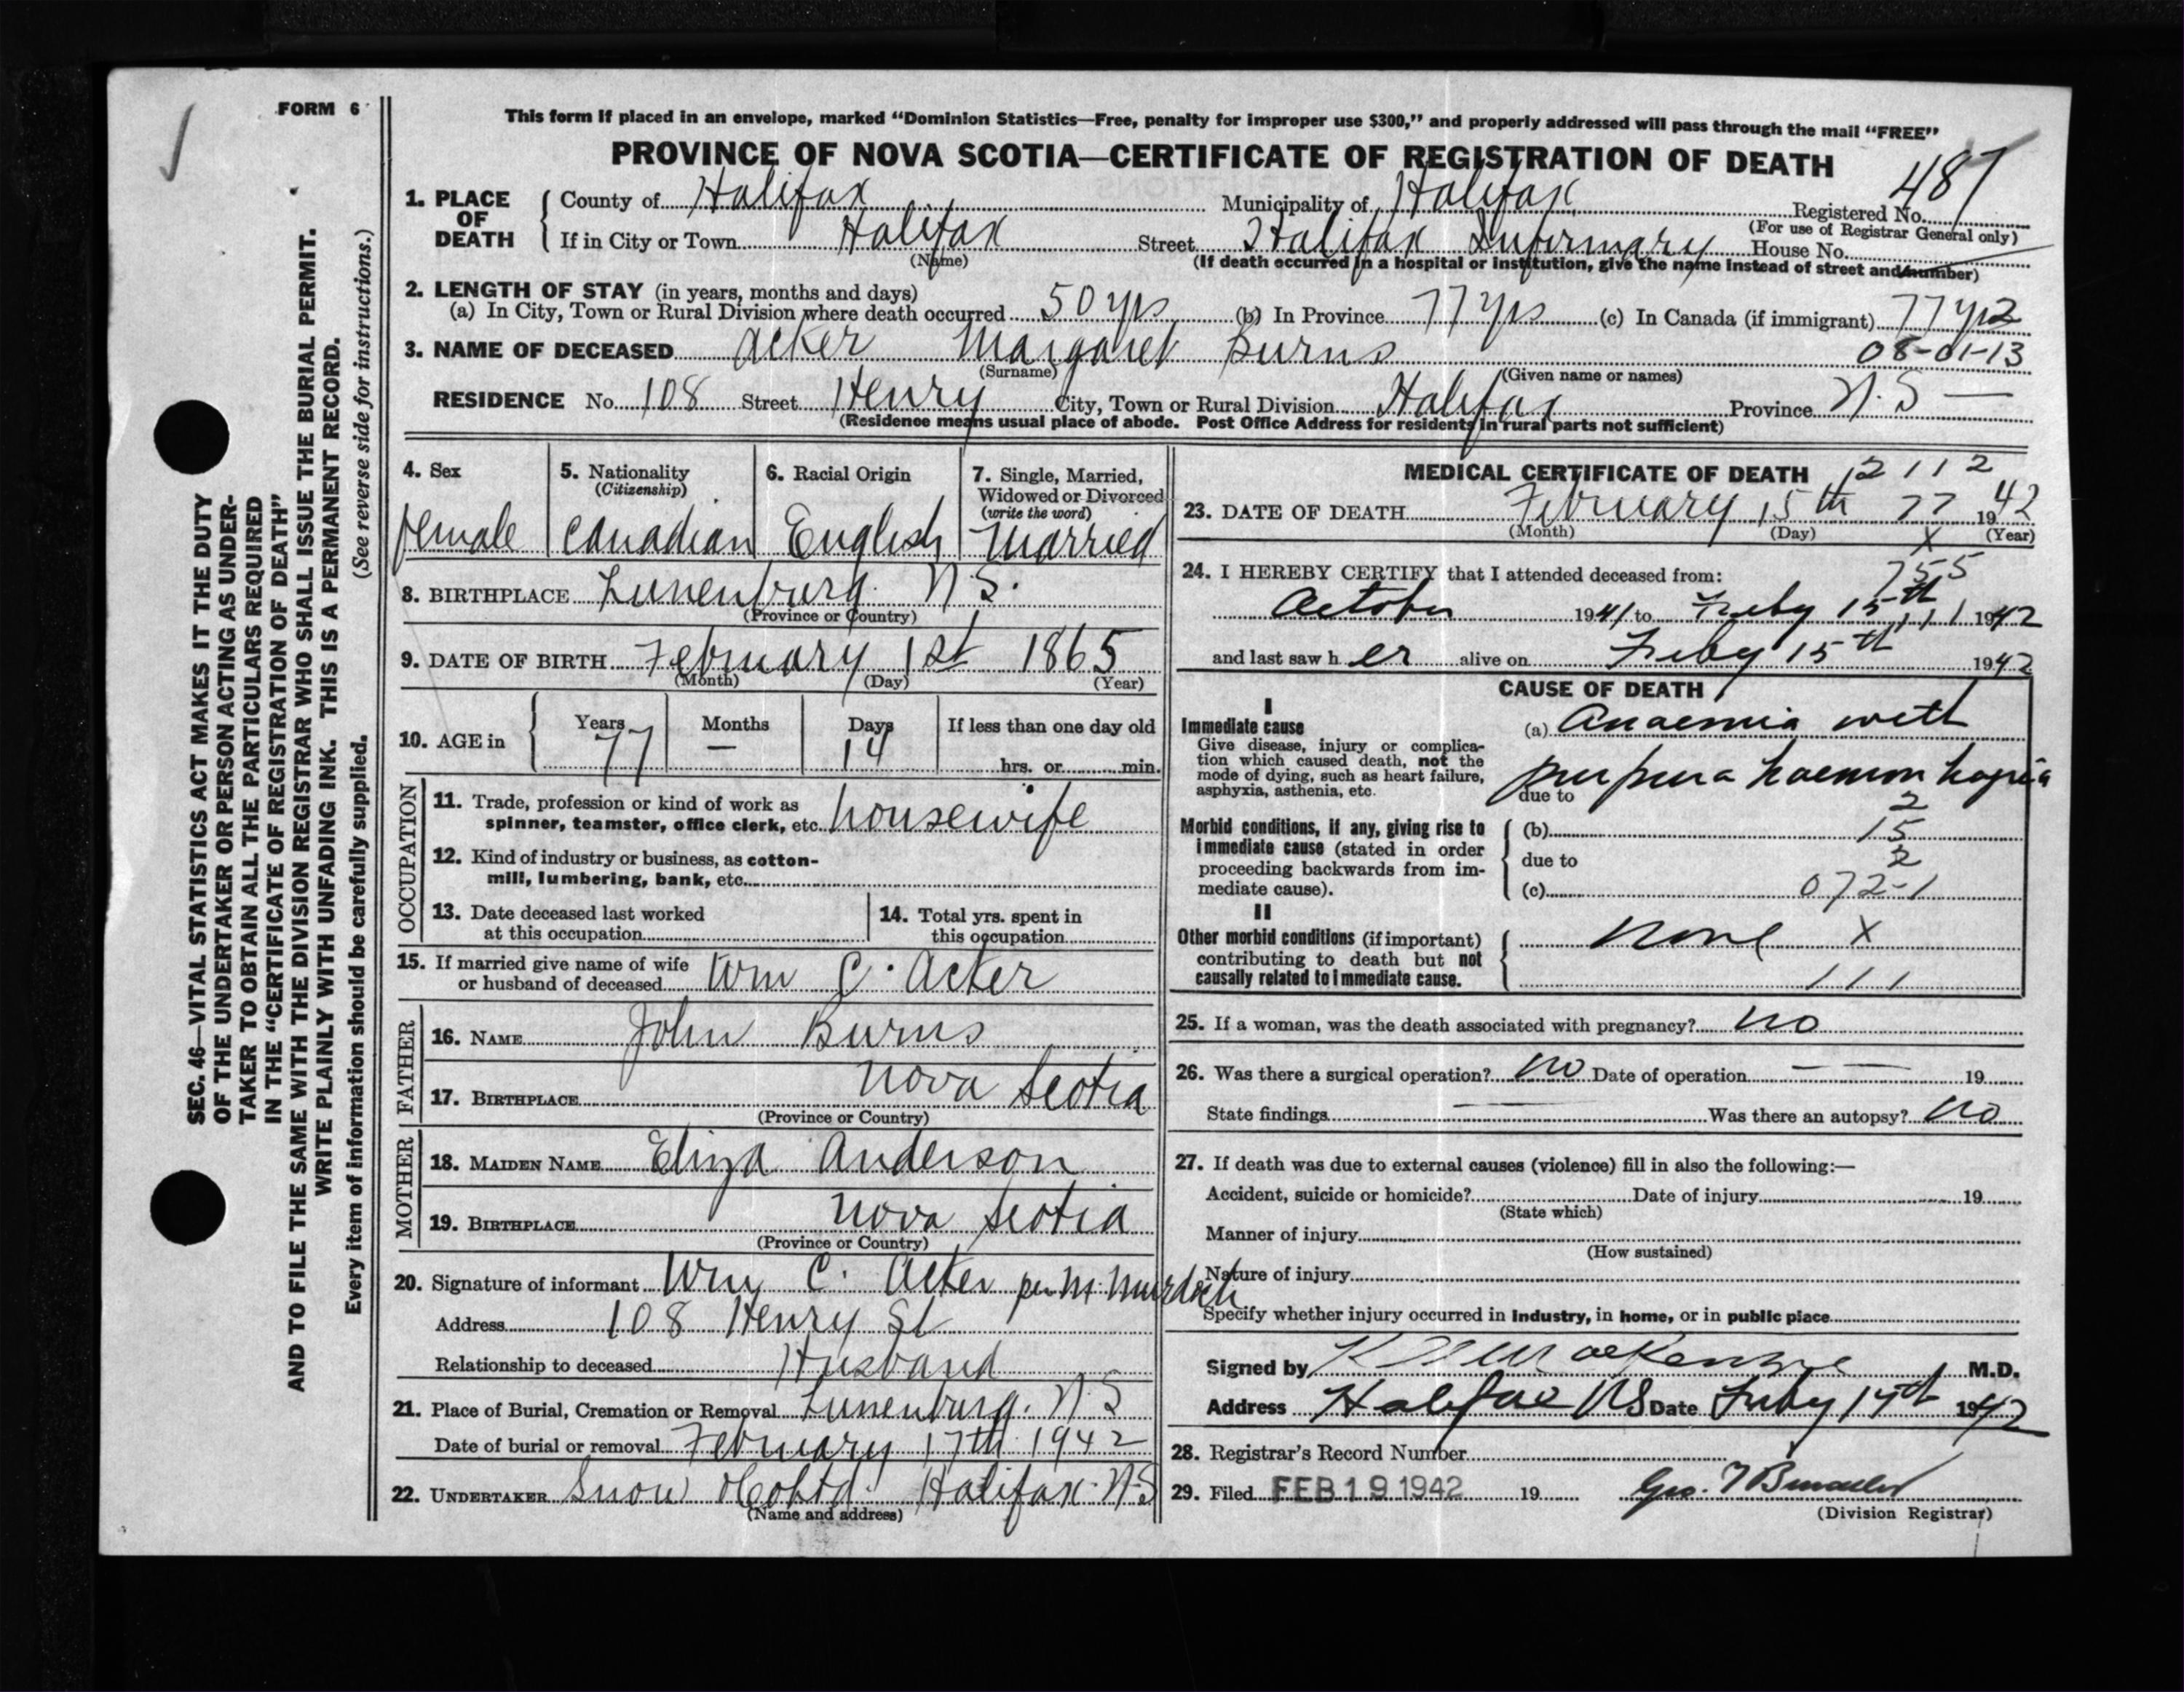 FORM 6
SEC. 46—VITAL STATISTICS ACT MAKES IT THE DUTY
OF THE UNDERTAKER OR PERSON ACTING AS UNDER-
TAKER TO OBTAIN ALL THE PARTICULARS REQUIRED
IN THE "CERTIFICATE OF REGISTRATION OF DEATH"
AND TO FILE THE SAME WITH THE DIVISION REGISTRAR WHO SHALL ISSUE THE BURIAL PERMIT.
WRITE PLAINLY WITH UNFADING INK. THIS IS A PERMANENT RECORD.
Every item of information should be carefully supplied. (See reverse side for instructions.)
This form if placed in an envelope, marked "Dominion Statistics—Free, penalty for improper use $300," and properly addressed will pass through the mail "FREE"
PROVINCE OF NOVA SCOTIA—CERTIFICATE OF REGISTRATION OF DEATH
1. PLACE OF DEATH County of Halifax Municipality of Halifax Registered No. 487
(For use of Registrar General only)
If in City or Town Halifax Street Halifax Infirmary House No.
(Name) (If death occurred in a hospital or institution, give the name instead of street and number)
2. LENGTH OF STAY (in years, months and days)
(a) In City, Town or Rural Division where death occurred 50 yrs (b) In Province 77 yrs (c) In Canada (if immigrant) 77 yrs
3. NAME OF DECEASED Acker Margaret Burns 08-01-13
(Surname) (Given name or names)
RESIDENCE No. 108 Street Henry City, Town or Rural Division Halifax Province N.S —
(Residence means usual place of abode. Post Office Address for residents in rural parts not sufficient)
4. Sex
female
5. Nationality
(Citizenship)
Canadian
6. Racial Origin
English
7. Single, Married,
Widowed or Divorced
(write the word)
Married
8. BIRTHPLACE Lunenburg. N.S.
(Province or Country)
9. DATE OF BIRTH February 1st 1865
(Month) (Day) (Year)
10. AGE in Years 77 Months — Days 14 If less than one day old
hrs. or min.
OCCUPATION
11. Trade, profession or kind of work as
spinner, teamster, office clerk, etc. housewife
12. Kind of industry or business, as cotton-
mill, lumbering, bank, etc.
13. Date deceased last worked
at this occupation
14. Total yrs. spent in
this occupation
15. If married give name of wife
or husband of deceased Wm C. Acker
FATHER
16. NAME John Burns
17. BIRTHPLACE Nova Scotia
(Province or Country)
MOTHER
18. MAIDEN NAME Eliza Anderson
19. BIRTHPLACE Nova Scotia
(Province or Country)
20. Signature of informant Wm C. Acker per M. Murdoch
Address 108 Henry St
Relationship to deceased Husband
21. Place of Burial, Cremation or Removal Lunenburg. N.S
Date of burial or removal February 17th 1942
22. UNDERTAKER Snow & Co Ltd. Halifax. N.S
(Name and address)
MEDICAL CERTIFICATE OF DEATH 12 112
23. DATE OF DEATH February 15th 77 1942
(Month) (Day) X (Year)
24. I HEREBY CERTIFY that I attended deceased from: 755
October 1941 to Feby 15th 111 1942
and last saw h er alive on Feby 15th 1942
CAUSE OF DEATH
I
Immediate cause
Give disease, injury or complica-
tion which caused death, not the
mode of dying, such as heart failure,
asphyxia, asthenia, etc.
(a) Anaemia with
purpura haemorrhagica
due to 2
Morbid conditions, if any, giving rise to
immediate cause (stated in order
proceeding backwards from im-
mediate cause).
(b) 15
due to 2
(c) 072-1
II
Other morbid conditions (if important)
contributing to death but not
causally related to immediate cause.
none X
111
25. If a woman, was the death associated with pregnancy? no
26. Was there a surgical operation? no Date of operation — — 19
State findings — Was there an autopsy? no
27. If death was due to external causes (violence) fill in also the following:—
Accident, suicide or homicide? Date of injury 19
(State which)
Manner of injury
(How sustained)
Nature of injury
Specify whether injury occurred in industry, in home, or in public place
Signed by MacKenzie M.D.
Address Halifax NS Date Feby 17th 1942
28. Registrar's Record Number
29. Filed FEB 19 1942 19 Geo.
(Division Registrar)